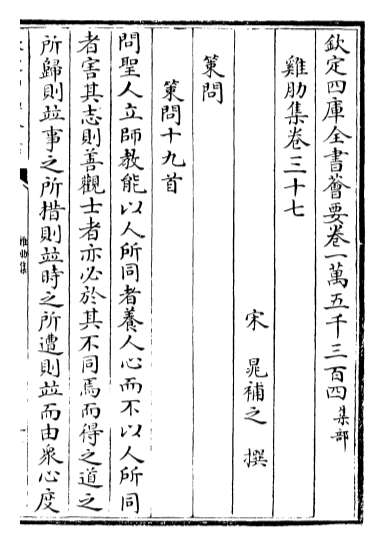 欽定四庫全書薈要卷一萬五千三百四集部
雞肋集卷三十七
宋 晁補之 撰
策問
策問十九首
問聖人立師教能以人所同者養人心而不以人所同
者害其志則善觀士者亦必於其不同焉而得之道之
所歸則竝事之所措則竝時之所遭則竝而由衆心度